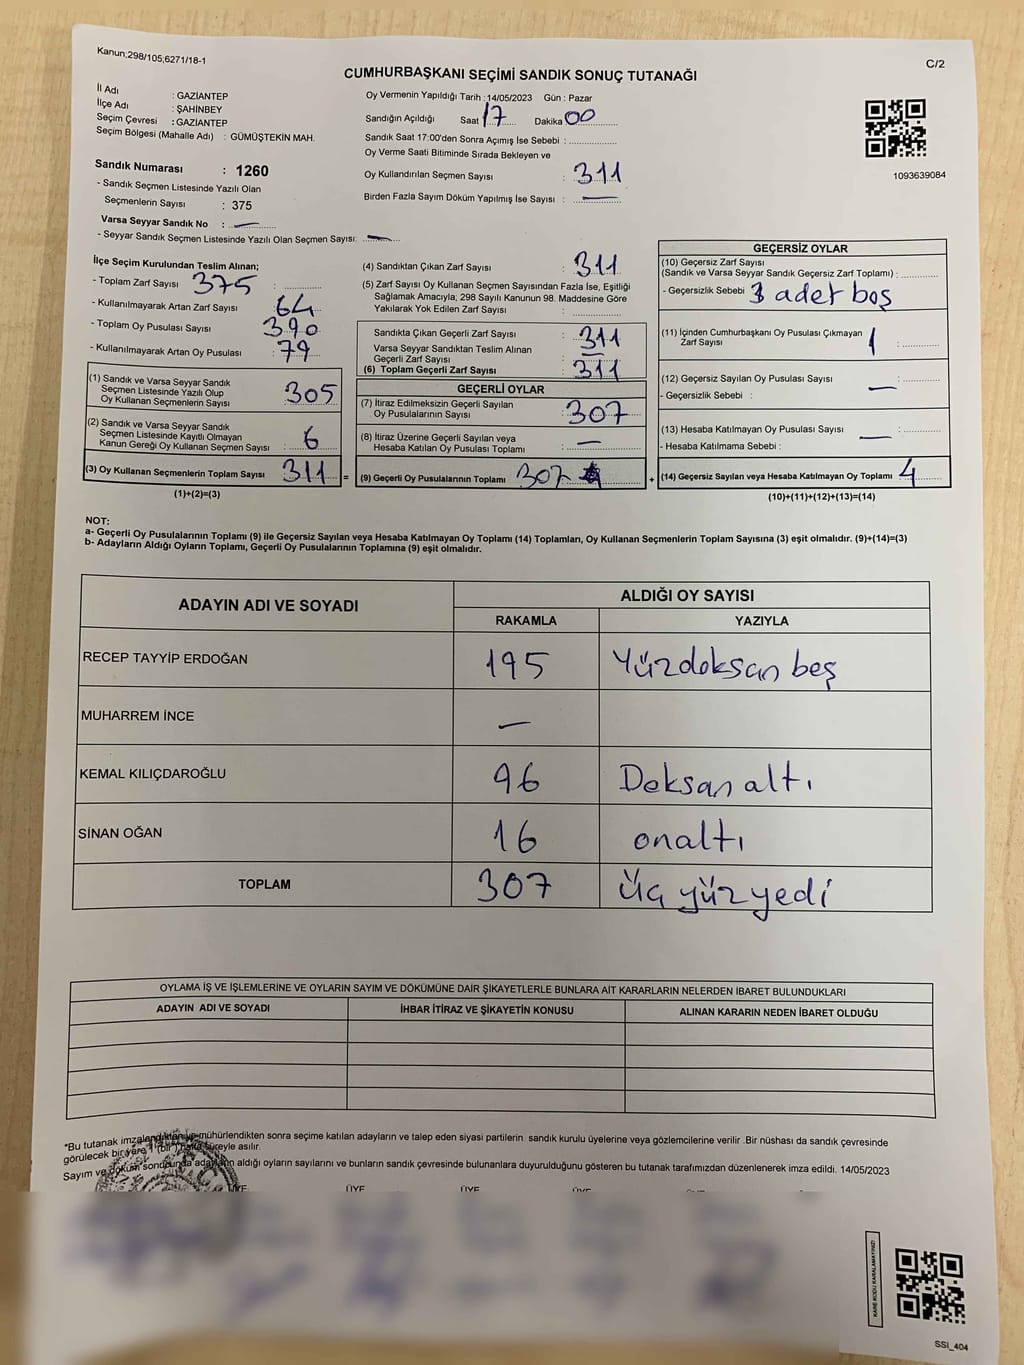 Kanun;298/105,6271/18-1
C/2
CUMHURBAŞKANI SEÇİMİ SANDIK SONUÇ TUTANAĞI
İl Adı : GAZİANTEP
İlçe Adı : ŞAHİNBEY
Seçim Çevresi : GAZİANTEP
Seçim Bölgesi (Mahalle Adı) : GÜMÜŞTEKİN MAH.
Sandık Numarası : 1260
- Sandık Seçmen Listesinde Yazılı Olan
Seçmenlerin Sayısı : 375
Varsa Seyyar Sandık No : —
- Seyyar Sandık Seçmen Listesinde Yazılı Olan Seçmen Sayısı: —
Oy Vermenin Yapıldığı Tarih : 14/05/2023 Gün : Pazar
Sandığın Açıldığı Saat 17 Dakika 00
Sandık Saat 17:00'den Sonra Açımış İse Sebebi :
Oy Verme Saati Bitiminde Sırada Bekleyen ve
Oy Kullandırılan Seçmen Sayısı : 311
Birden Fazla Sayım Döküm Yapılmış İse Sayısı : —
1093639084
İlçe Seçim Kurulundan Teslim Alınan;
- Toplam Zarf Sayısı 375
- Kullanılmayarak Artan Zarf Sayısı 64
- Toplam Oy Pusulası Sayısı 390
- Kullanılmayarak Artan Oy Pusulası : 79
(1) Sandık ve Varsa Seyyar Sandık
Seçmen Listesinde Yazılı Olup
Oy Kullanan Seçmenlerin Sayısı 305
(2) Sandık ve Varsa Seyyar Sandık
Seçmen Listesinde Kayıtlı Olmayan
Kanun Gereği Oy Kullanan Seçmen Sayısı : 6
(3) Oy Kullanan Seçmenlerin Toplam Sayısı 311 =
(1)+(2)=(3)
(4) Sandıktan Çıkan Zarf Sayısı : 311
(5) Zarf Sayısı Oy Kullanan Seçmen Sayısından Fazla İse, Eşitliği
Sağlamak Amacıyla; 298 Sayılı Kanunun 98. Maddesine Göre
Yakılarak Yok Edilen Zarf Sayısı :
Sandıkta Çıkan Geçerli Zarf Sayısı : 311
Varsa Seyyar Sandıktan Teslim Alınan
Geçerli Zarf Sayısı : —
(6) Toplam Geçerli Zarf Sayısı : 311
GEÇERLİ OYLAR
(7) İtiraz Edilmeksizin Geçerli Sayılan
Oy Pusulalarının Sayısı : 307
(8) İtiraz Üzerine Geçerli Sayılan veya
Hesaba Katılan Oy Pusulası Toplamı : —
(9) Geçerli Oy Pusulalarının Toplamı 307 +
GEÇERSİZ OYLAR
(10) Geçersiz Zarf Sayısı
(Sandık ve Varsa Seyyar Sandık Geçersiz Zarf Toplamı) :
- Geçersizlik Sebebi : 3 adet boş
(11) İçinden Cumhurbaşkanı Oy Pusulası Çıkmayan
Zarf Sayısı 1 :
(12) Geçersiz Sayılan Oy Pusulası Sayısı — :
- Geçersizlik Sebebi :
(13) Hesaba Katılmayan Oy Pusulası Sayısı — :
- Hesaba Katılmama Sebebi :
(14) Geçersiz Sayılan veya Hesaba Katılmayan Oy Toplamı 4
(10)+(11)+(12)+(13)=(14)
NOT:
a- Geçerli Oy Pusulalarının Toplamı (9) ile Geçersiz Sayılan veya Hesaba Katılmayan Oy Toplamı (14) Toplamları, Oy Kullanan Seçmenlerin Toplam Sayısına (3) eşit olmalıdır. (9)+(14)=(3)
b- Adayların Aldığı Oyların Toplamı, Geçerli Oy Pusulalarının Toplamına (9) eşit olmalıdır.
ADAYIN ADI VE SOYADI
ALDIĞI OY SAYISI
RAKAMLA YAZIYLA
RECEP TAYYİP ERDOĞAN 195 Yüzdoksan beş
MUHARREM İNCE —
KEMAL KILIÇDAROĞLU 96 Doksan altı
SİNAN OĞAN 16 onaltı
TOPLAM 307 Üç yüz yedi
OYLAMA İŞ VE İŞLEMLERİNE VE OYLARIN SAYIM VE DÖKÜMÜNE DAİR ŞİKAYETLERLE BUNLARA AİT KARARLARIN NELERDEN İBARET BULUNDUKLARI
ADAYIN ADI VE SOYADI İHBAR İTİRAZ VE ŞİKAYETİN KONUSU ALINAN KARARIN NEDEN İBARET OLDUĞU
*Bu tutanak imzalandıktan ve mühürlendikten sonra seçime katılan adayların ve talep eden siyasi partilerin sandık kurulu üyelerine veya gözlemcilerine verilir .Bir nüshası da sandık çevresinde
görülecek bir yere 1 (bir) hafta süreyle asılır.
Sayım ve döküm sonucunda adayların aldığı oyların sayılarını ve bunların sandık çevresinde bulunanlara duyurulduğunu gösteren bu tutanak tarafımızdan düzenlenerek imza edildi. 14/05/2023
ÜYE ÜYE ÜYE
KARE KODU KARALAMAYINIZ!
SSI_404